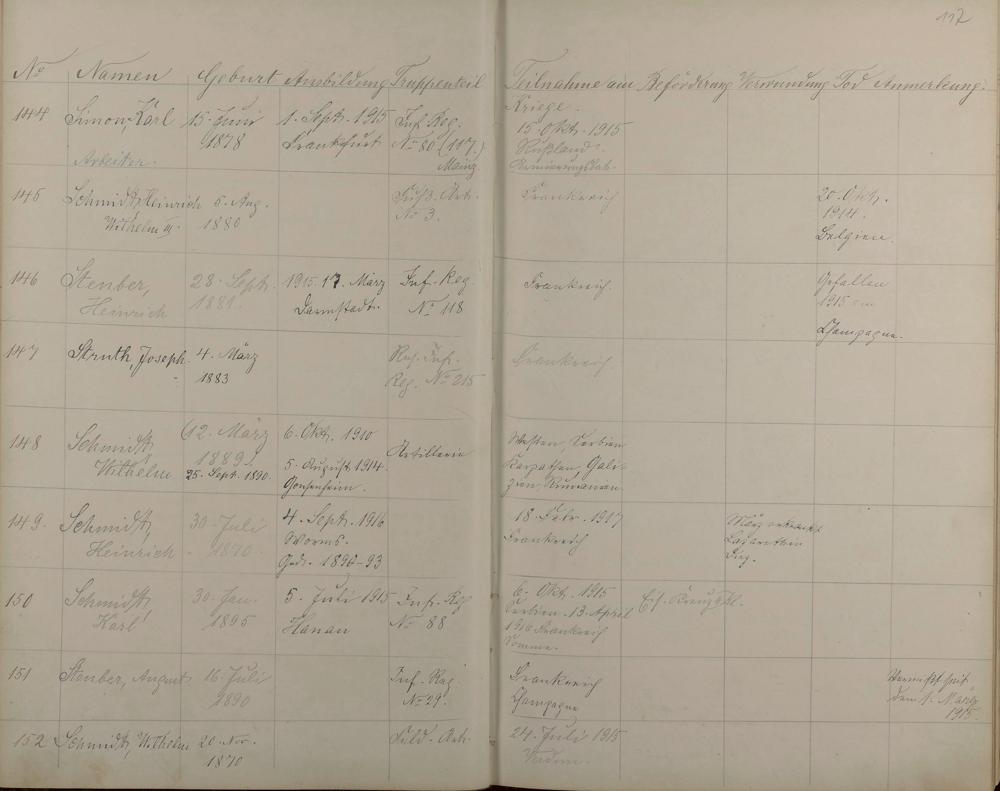 117
No Namen Geburt Ausbildung Truppenteil Teilnahme am Kriege. Beförderung Verwundung Tod Anmerkung.
144 Simon, Karl 15. Juni 1. Sept. 1915 Inf. Reg. 15. Okt. 1915
1878 Frankfurt No 80 (117.) Rußland.
Arbeiter. Mainz
145 Schmidt, Heinrich 5. Aug. Fuß. Art. Frankreich 20. Okt.
Wilhelm III. 1880 No 3. 1914.
Belgien.
146 Stenber, 28. Sept. 1915. 17. März Inf. Reg. Frankreich. Gefallen
Heinrich 1881. Darmstadt. No 118 1915
Champagne.
147 Struth, Joseph. 4. März Res. Inf. Frankreich.
1883 Reg. No 215
148 Schmidt, (12. März 6. Okt. 1910 Artillerie Westen, Serbien
Wilhelm 1889) 5. August 1914. Karpathen, Gali-
25. Sept. 1890. Gonsenheim. zien, Rumänien.
149. Schmidt, 30. Juli 4. Sept. 1916 18. Febr. 1917 März erkrankt
Heinrich 1870. Worms. Frankreich Lazarett in
Ged. 1890-93 Diez.
150 Schmidt, 30. Jan. 5. Juli 1915 Inf. Reg. 6. Okt. 1915 Eis. Kreuz 2 Kl.
Karl 1895 Hanau No 88 Serbien. 13. April
1916 Frankreich
Somme.
151 Stenber, August 16. Juli Inf. Reg. Frankreich Vermißt seit
1890 No 29. Champagne dem 1. März
1915.
152 Schmidt, Wilhelm 20. Nov. Feld. Art. 24. Juli 1915
1870 Verdun.